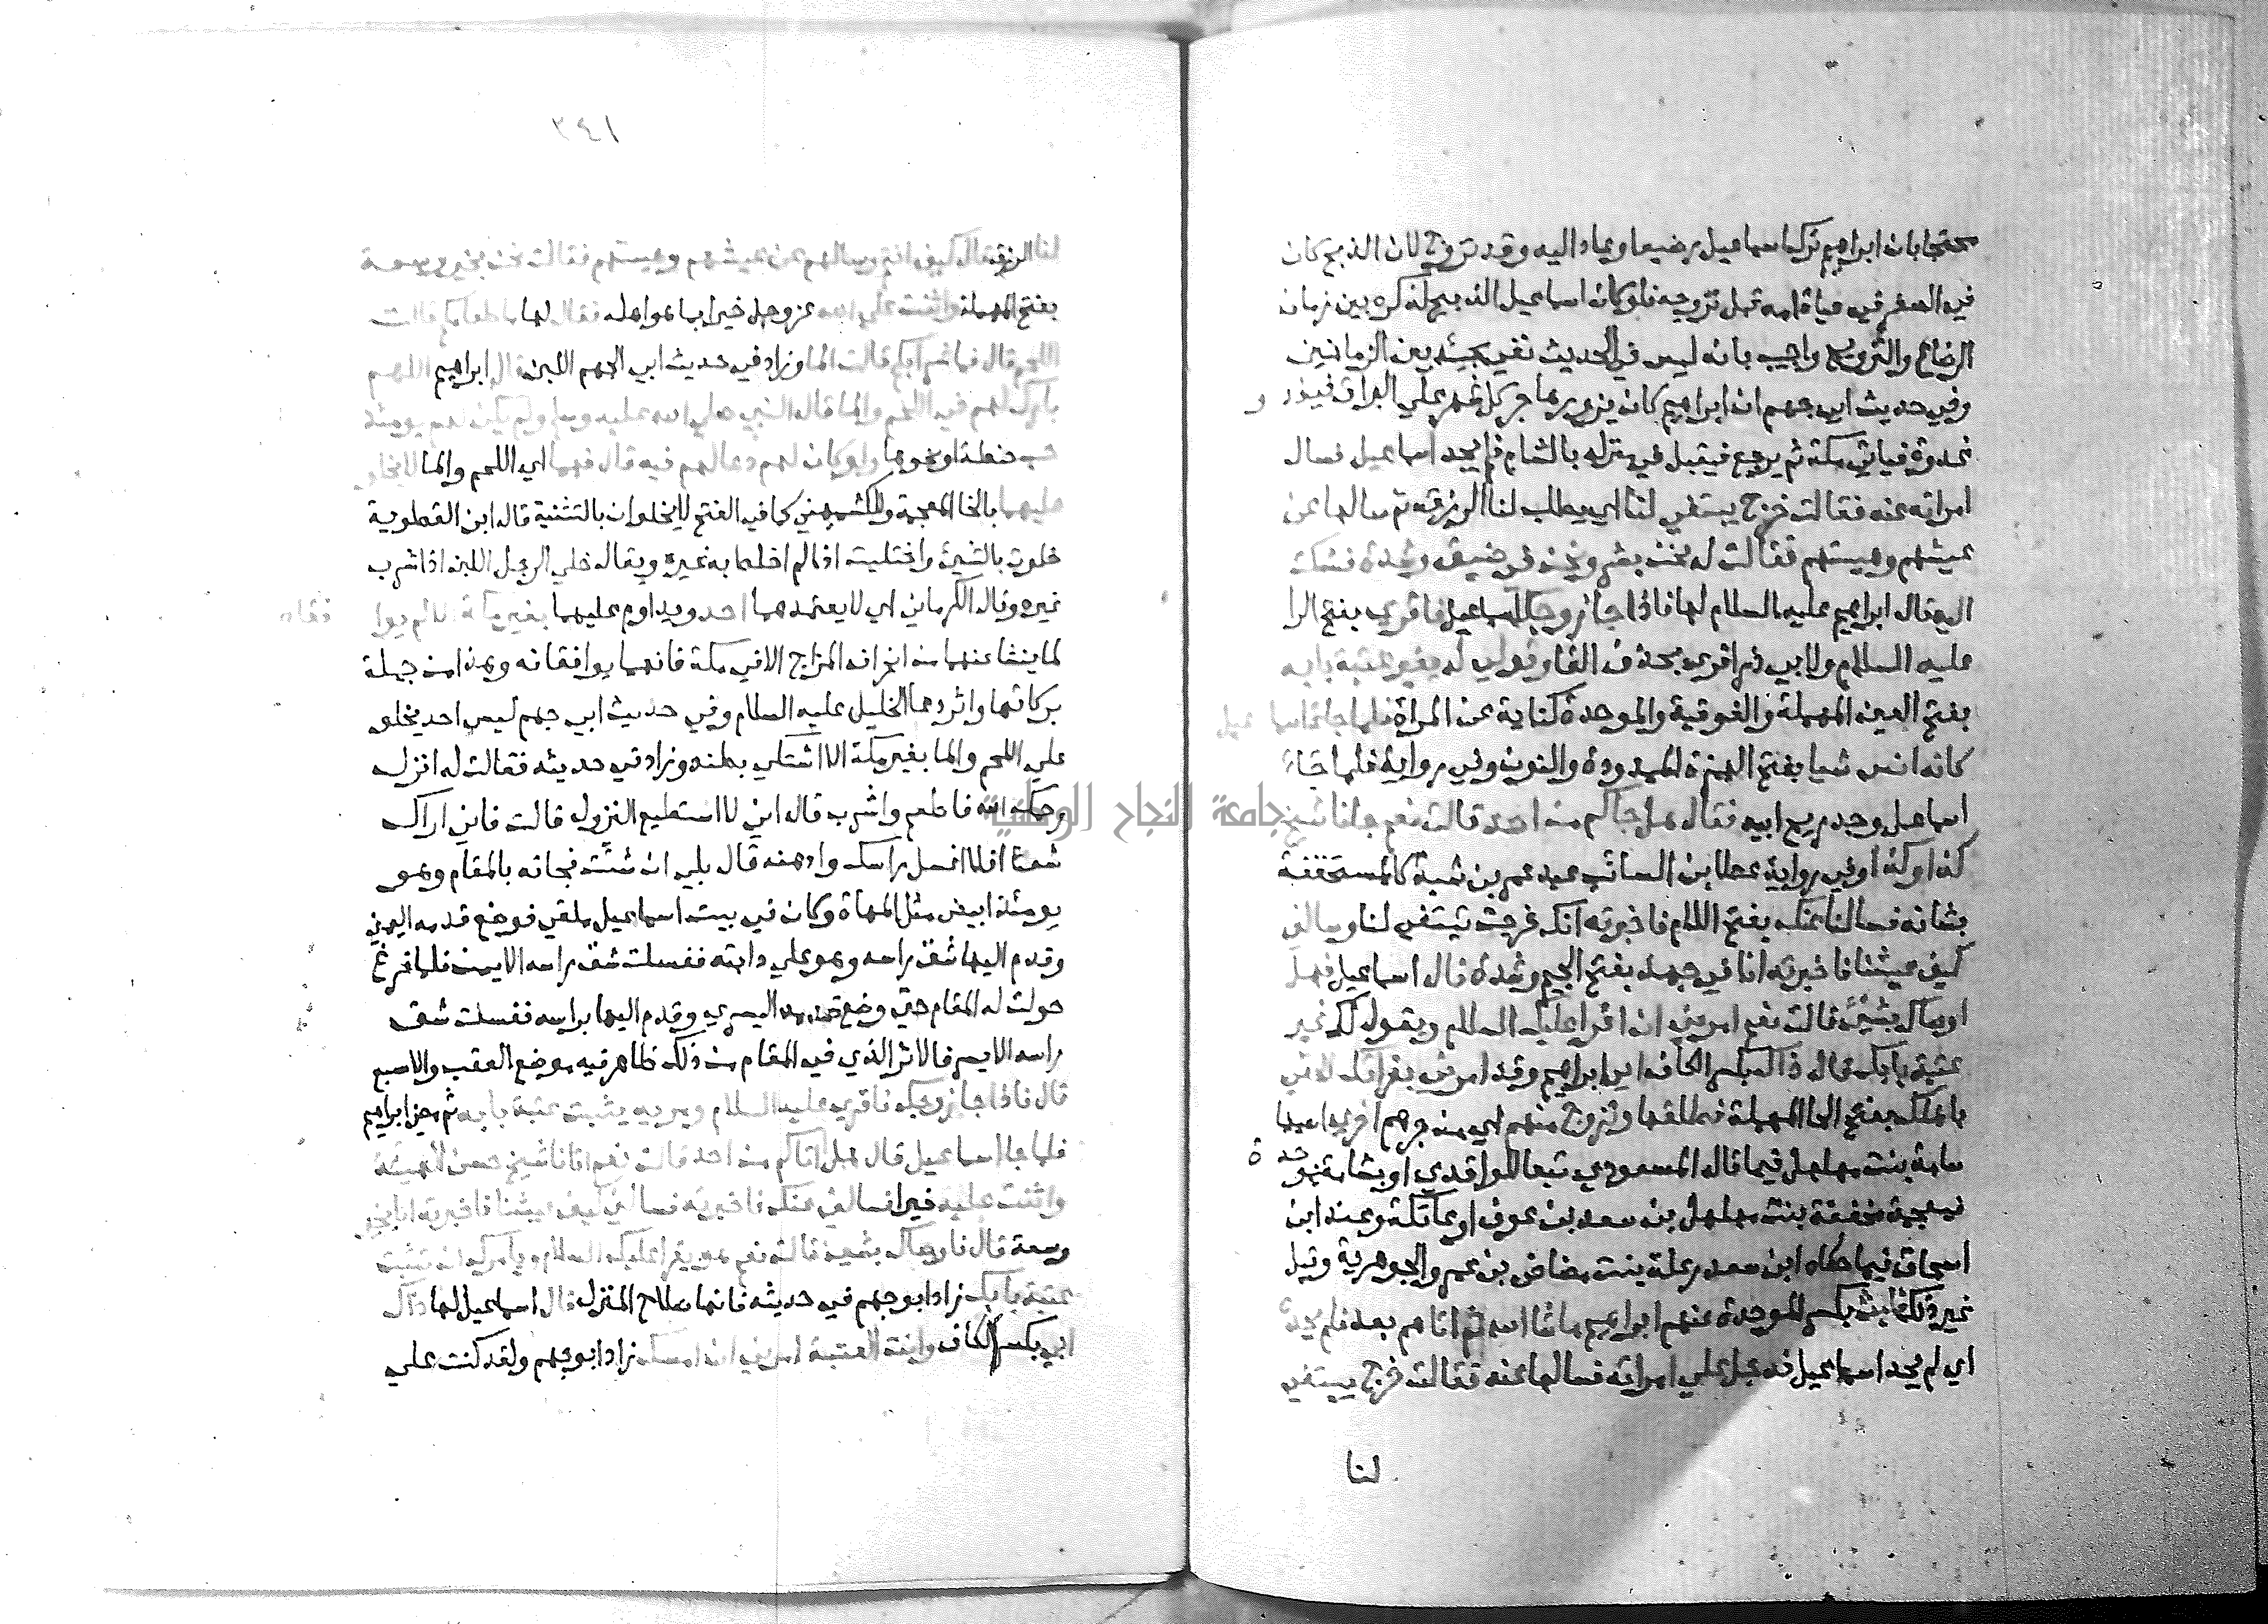 محتجا بان ابراهيم ترك اسماعيل رضيعا وعاد اليه وقد تزوج لان الذبح كان
في الصغر في حياة امه قبل تزوجه فلو كان اسماعيل الذبيح لذكره بين زمان
الرضاع والتزويج واجيب بانه ليس في الحديث نفي مجيئه بين الزمانين
وفي حديث ابي جهم ان ابراهيم كان يزور هاجر كل شهر علي البراق فيغدو
غدوة فياتي مكة ثم يرجع فيقيل في منزله بالشام فلم يجد اسماعيل فسال
امراته عنه فقالت خرج يبتغي لنا اي يطلب لنا الرزق ثم سالها عن
عيشهم وهيئتهم فقالت له نحن بشر ونحن في ضيق وشدة فشكت
اليه قال ابراهيم عليه السلام لها فاذا جا زوجك اسماعيل فاقري بفتح الرا
عليه السلام ولابي ذر اقري بحذف الفا وقولي له يغير عتبة بابه
بفتح العين المهملة والفوقية والموحدة كناية عن المراة فلما جا اسماعيل
كانه انس شيا بفتح الهمزة الممدودة والنون وفي رواية فلما جا
اسماعيل وجد ريح ابيه فقال هل جاكم من احد قالت نعم جانا شيخ
كذا وكذا وفي رواية عطا بن السائب عند عمر بن شبة كالمستخفة
بشانه فسالنا عنك بفتح اللام فاخبرته انك خرجت تبتغي لنا وسالني
كيف عيشنا فاخبرته انا في جهد بفتح الجيم وشدة قال اسماعيل فهل
اوصاك بشيئ قالت نعم امرني ان اقرا عليك السلام ويقول لك غير
عتبة بابك قال ذاك بكسر الكاف ابي ابراهيم وقد امرني بفراقك الحقي
باهلك بفتح الحا المهملة فطلقها وتزوج منهم اي من جرهم اخري اسمها
سامة بنت مهلهل فيما قاله المسعودي تبعا للواقدي او بشامة بموحدة
فمعجمة مخففة بنت مهلهل بن سعد بن عوف او عاتكة وعند ابن
اسحاق فيما حكاه ابن سعد رعلة بنت مضاض بن عمرو الجرهمية وقيل
غير ذلك فلبث بكسر الموحدة عنهم ابراهيم ما شا الله ثم اتاهم بعد فلم يجده
اي لم يجد اسماعيل فدخل علي امراته فسالها عنه فقالت خرج يبتغي
لنا
١٤٣
لنا الرزق قال كيف انتم وسالهم عن عيشهم وهيئتهم فقالت نحن بخير وسعة
بفتح المهملة واثنت علي الله عز وجل خيرا بما هو اهله فقال لها ما طعامكم قالت
اللحم قال فما شرابكم قالت الما وزاد في حديث ابي الجهم اللبن قال ابراهيم اللهم
بارك لهم في اللحم والما قال النبي صلي الله عليه وسلم ولم يكن لهم يومئذ
حب حنطة او نحوها ولو كان لهم دعا لهم فيه قال فهما اي اللحم والما لا يخلو
عليهما بالخا المعجمة وللكشميهني كما في الفتح لا يخلوان بالتثنية قال ابن القطوية
خلوت بالشيئ واختليت اذا لم اخلط به غيره ويقال خلي الرجل اللبن اذا شرب
غيره وقال الكرماني اي لا يعتمدهما احد ويداوم عليهما بغير مكة الا لم يوافقاه
لما ينشا عنهما من انحراف المزاج الا في مكة فانهما يوافقانه وهذا من جملة
بركاتها واثر دعا الخليل عليه السلام وفي حديث ابي جهم ليس احد يخلو
علي اللحم والما بغير مكة الا اشتكي بطنه وزاد في حديثه فقالت له انزل
رحمك الله فاطعم واشرب قال اني لا استطيع النزول قالت فاني اراك
شعثا افلا اغسل راسك وادهنه قال بلي ان شئت فجاته بالمقام وهو
يومئذ ابيض مثل المهاة وكان في بيت اسماعيل ملقي فوضع قدمه اليمني
وقدم اليها شق راسه وهو علي دابته فغسلت شق راسه الايمن فلما فرغ
حولت له المقام حتي وضع قدمه اليسري وقدم اليها براسه فغسلت شق
راسه الايسر فالاثر الذي في المقام من ذلك ظاهر فيه موضع العقب والاصبع
قال فاذا جا زوجك فاقري عليه السلام ومريه يثبت عتبة بابه ثم مضي ابراهيم
فلما جا اسماعيل قال هل اتاكم من احد قالت نعم اتانا شيخ حسن الهيئة
واثنت عليه خيرا فسالني عنك فاخبرته فسالني كيف عيشنا فاخبرته انا بخير
وسعة قال فاوصاك بشيئ قالت نعم هو يقرا عليك السلام ويامرك ان تثبت
عتبة بابك زاد ابو جهم في حديثه فانها صلاح المنزل قال اسماعيل لها ذاك
ابي بكسر الكاف وانت العتبة امرني ان امسك زاد ابو جهم ولقد كنت علي
جامعة النجاح الوطنية